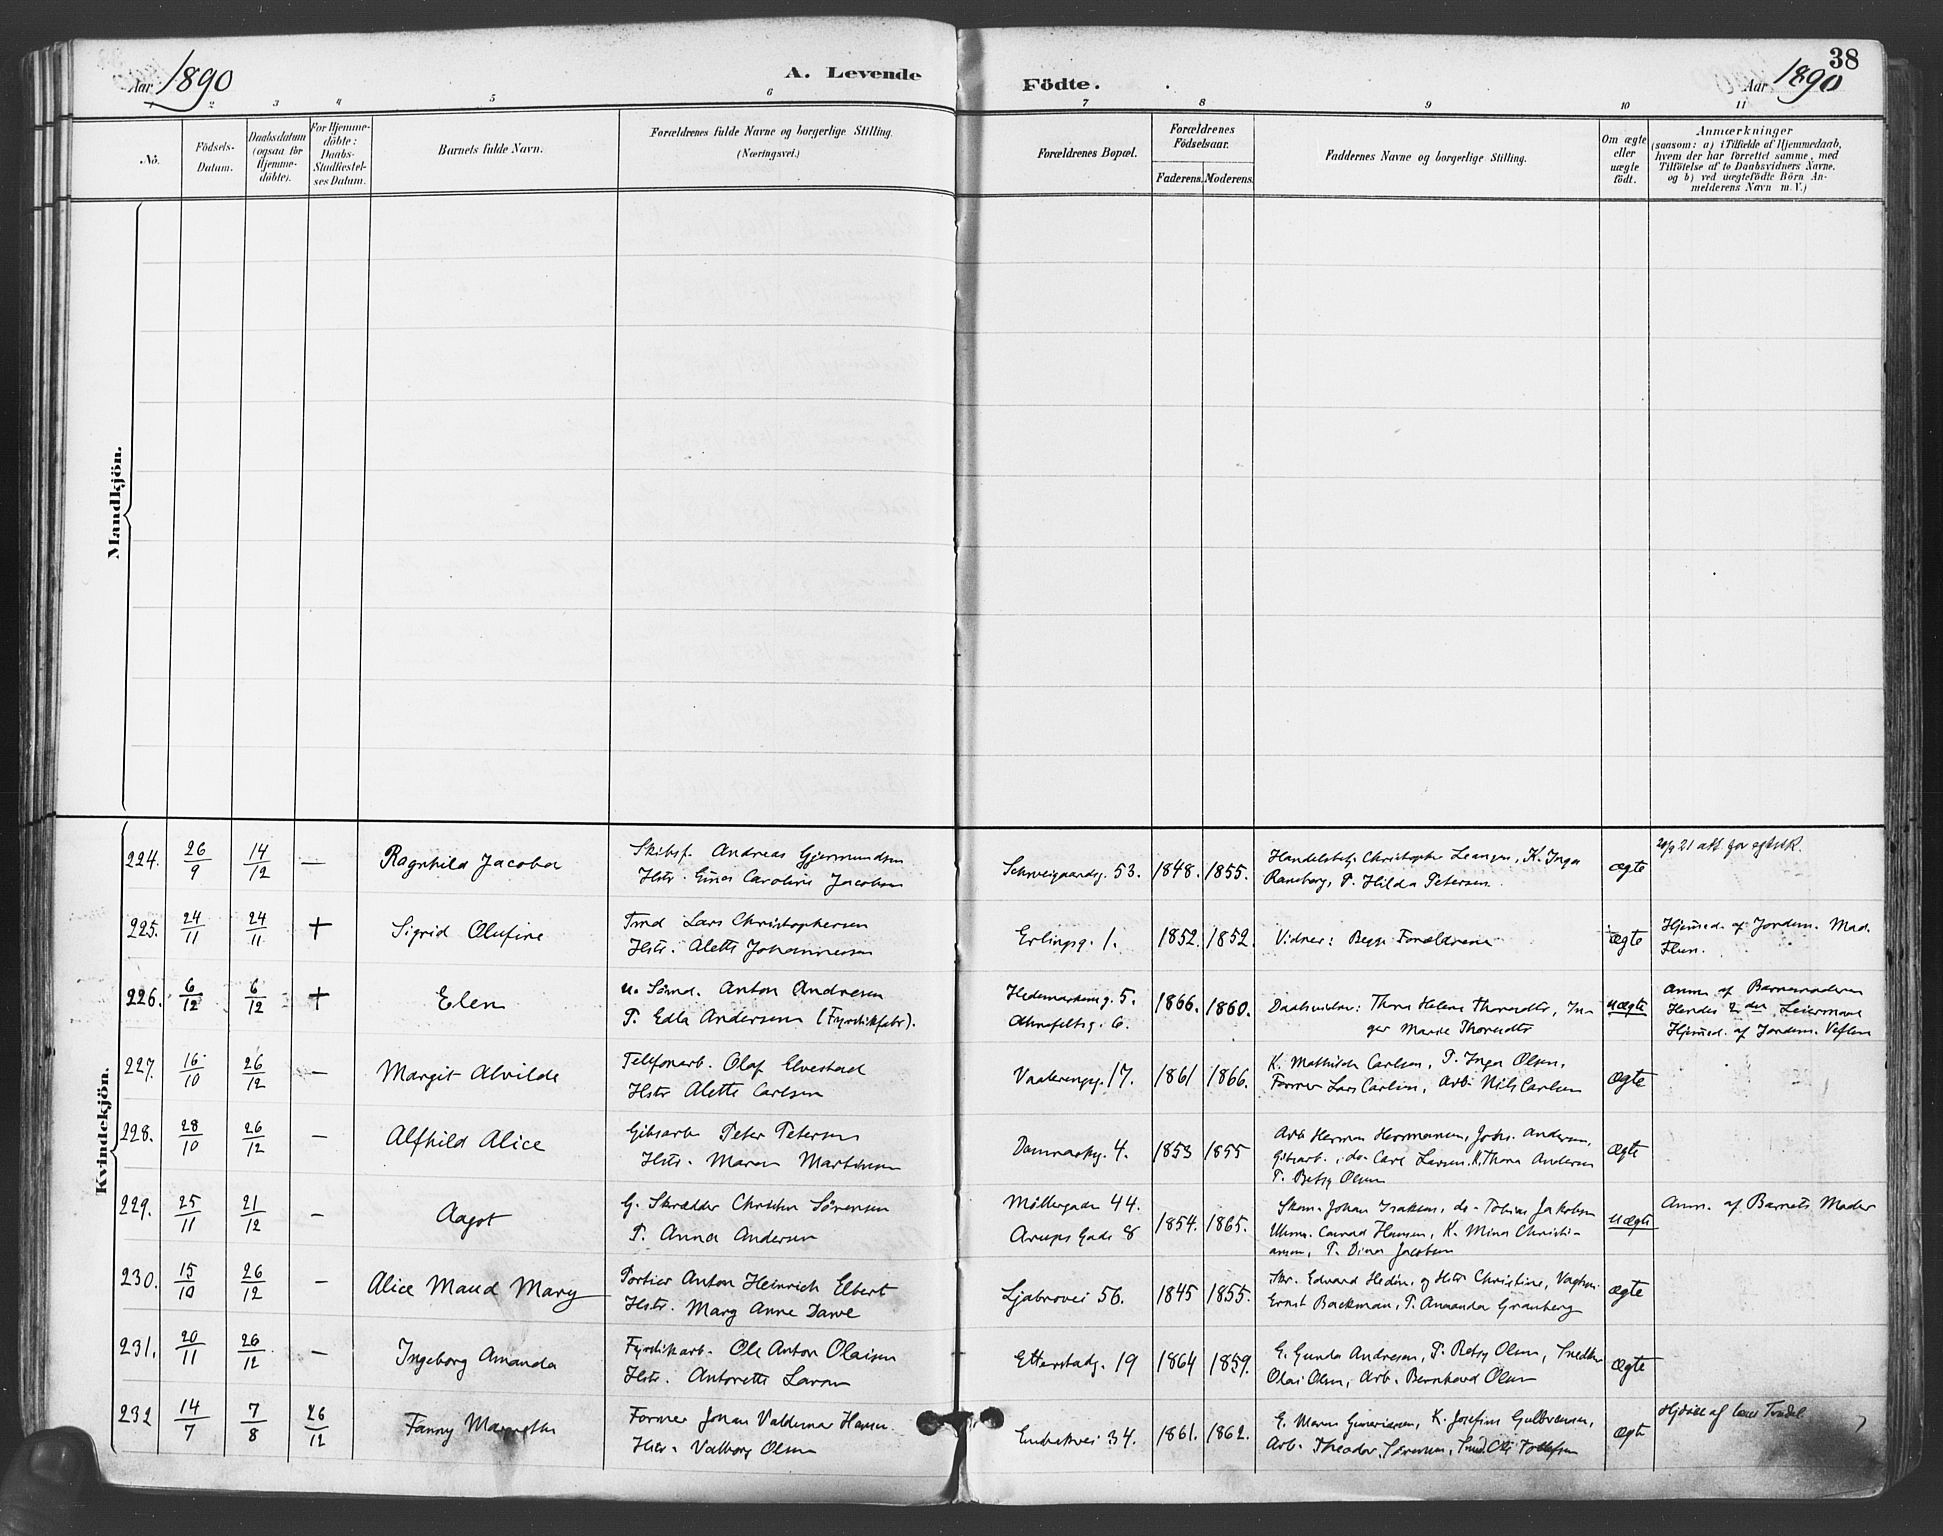 38
Aar 1890
A. Levende
Födte.
Aar 1890
1 2 3 4 5 6 7 8 9 10 11
Nô.
Födsels-
Datum.
Daabsdatum
(ogsaa for
Hjemme-
döbte).
For Hjemme-
döbte:
Daabs-
Stadfæstel-
ses Datum.
Barnets fulde Navn.
Forældrenes fulde Navne og borgerlige Stilling.
(Næringsvei.)
Forældrenes Bopæl.
Forældrenes
Födselsaar.
Faderens. Moderens.
Faddernes Navne og borgerlige Stilling.
Om ægte
eller
uægte
födt.
Anmærkninger
(saasom: a) i Tilfælde af Hjemmedaab,
hvem der har forrettet samme, med
Tilföielse af to Daabsvidners Navne.
og b) ved uægtefödte Börn An-
melderens Navn m. V.)
Mandkjön.
Kvindekjön.
224. 26/9 14/12 — Ragnhild Jacoba
Skibsf. Andreas Gjermundsen
Hstr. Caroline Jacobsen
Schweigaardsg. 53. 1848. 1855.
Christopher K. Inga
P. Hilda Petersen
ægte
225. 24/11 24/11 + Sigrid Olufine
Tmd Lars Christophersen
Hstr. Alette Johannessen
Erlingsg. 1. 1852. 1852.
Vidner: Begge Forældrene
ægte
Hjemmed. af Jordem. Mad.
226. 6/12 6/12 + Elen
u. Sömd. Anton Andresen
P. Edla Andersen (Fyrstikfabr).
Hedemarkens g. 5.
Ahnefeltsg. 6.
1866. 1860.
Daabsvidner: Thora Helene In-
ger Marie
uægte
Anm. af Barnemoderen
Hendes 2den Leiermaal
Hjemed. af Jordem.
227. 16/10 26/12 — Margit Alvilde
Telefonarb. Olaf Elvestad
Hstr Alette Carlsen
Vaalerengg. 17. 1861 1866.
K. Mathilde Carlsen, P. Inga Olsen,
Former Lars Carlsen, Arb. Nils Carlsen
ægte
228. 28/10 26/12 — Alfhild Alice
Gibsarb Peter Petersen
Hstr. Maren Martinsen
Danmarksg. 4. 1853 1855
Arb Herman Hermansen, Johs. Andersen,
Gibsarb., do Carl Larsen, K. Thora Andersen
P. Betsy Olsen
ægte
229. 25/11 21/12 — Aagot
G. Skrædder Christen Sörensen
P. Anna Andersen
Möllergaden 44.
Arups Gade 8
1854. 1865.
Skom. Johan Isaksen, do - Tobias Jakobsen
Uhrm. Conrad Hansen, K. Mina Christi-
ansen, P. Dina Jacobsen
uægte
Anm. af Barnets Moder
230. 15/10 26/12 — Alice Maud Mary
Portier Anton Heinrich Elbert
Hstr. Mary Anne Dawe
Ljabrovei 56. 1845 1855.
Skr. Edvard Hedin, og Hstr Christine,
Ernst Backman, P. Amanda Granberg
ægte
231. 20/11 26/12 — Ingeborg Amanda
Fyrstikarb. Ole Anton Olaisen
Hstr. Antonette Larsen
Etterstadg. 19 1864 1859.
E. Gunda Andresen, P. Betsy Olsen, Snedker
Olai Olsen, Arb. Bernhard Olsen
ægte
232 14/7 7/8 26/12 Fanny
Former Johan Valdemar Hansen
Hstr. Valborg Olsen
34. 1861. 1862.
E. Maren K. Josefine Gulbransen,
Arb. Theodor Sörensen,
ægte